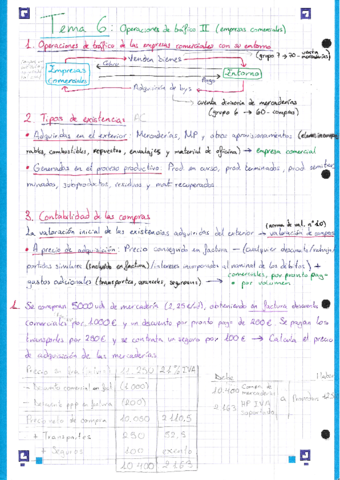 Tema 6: Operaciones de tráfico II (empresas comerciales)
1. Operaciones de tráfico de las empresas comerciales con su entorno
Venden bienes
(grupo 7 → 70 - venta mercaderías)
Cobro
Empresas Comerciales
Entorno
Pago
Adquisición de bys
cuenta dinámica de mercaderías
(grupo 6 → 60 - compras)
2. Tipos de existencias
• Adquiridas en el exterior: Mercaderías, MP y otros aprovisionamientos (elementos incorpo-
rables, combustibles, repuestos, envalajes y material de oficina) → empresa comercial
• Generadas en el proceso productivo: Prod en curso, prod terminados, prod semiter
minados, subproductos, residuos y mat recuperados
3. Contabilidad de las compras
(norma de val. nº 10)
La valoración inicial de las existencias adquiridas del exterior → valoración de compras
• A precio de adquisición: Precio consignado en factura - (cualquier descuento/rebaja
partidas similares (incluido en factura)/intereses incorporados al nominal de los debitos) +
comerciales, por pronto pago
gastos adicionales (transportes, aranceles, seguros...) → • por volumen
1. Se compran 5000 uds de mercadería (2,25€/ud), obteniendo en factura descuento
comerciales por 1000€ y un descuento por pronto pago de 200€. Se pagan los
transportes por 250€ y se contrata un seguro por 100€ → Calcula el precio
de adquisición de las mercaderías
11.250 21% IVA
- Descuento comercial en fact (1.000)
- Descuento ppp en factura (200)
Precio neto de compra 10.050 2.110,5
+ Transportes 250 52,5
+ Seguros 100 exento
10.400 2.163
10.400 Compra de mercaderías
2.163 HP IVA soportado
a